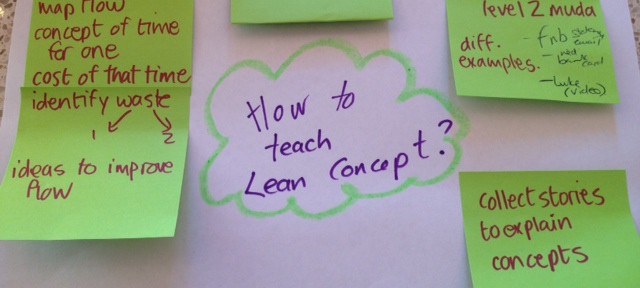 map flow
concept of time
for one
cost of that time
identify waste
1 2
ideas to improve
flow
How to
teach
Lean Concept?
level 2 muda
diff.
examples.
- fnb
email
- red
card
- Luke
(video)
collect stories
to explain
concepts